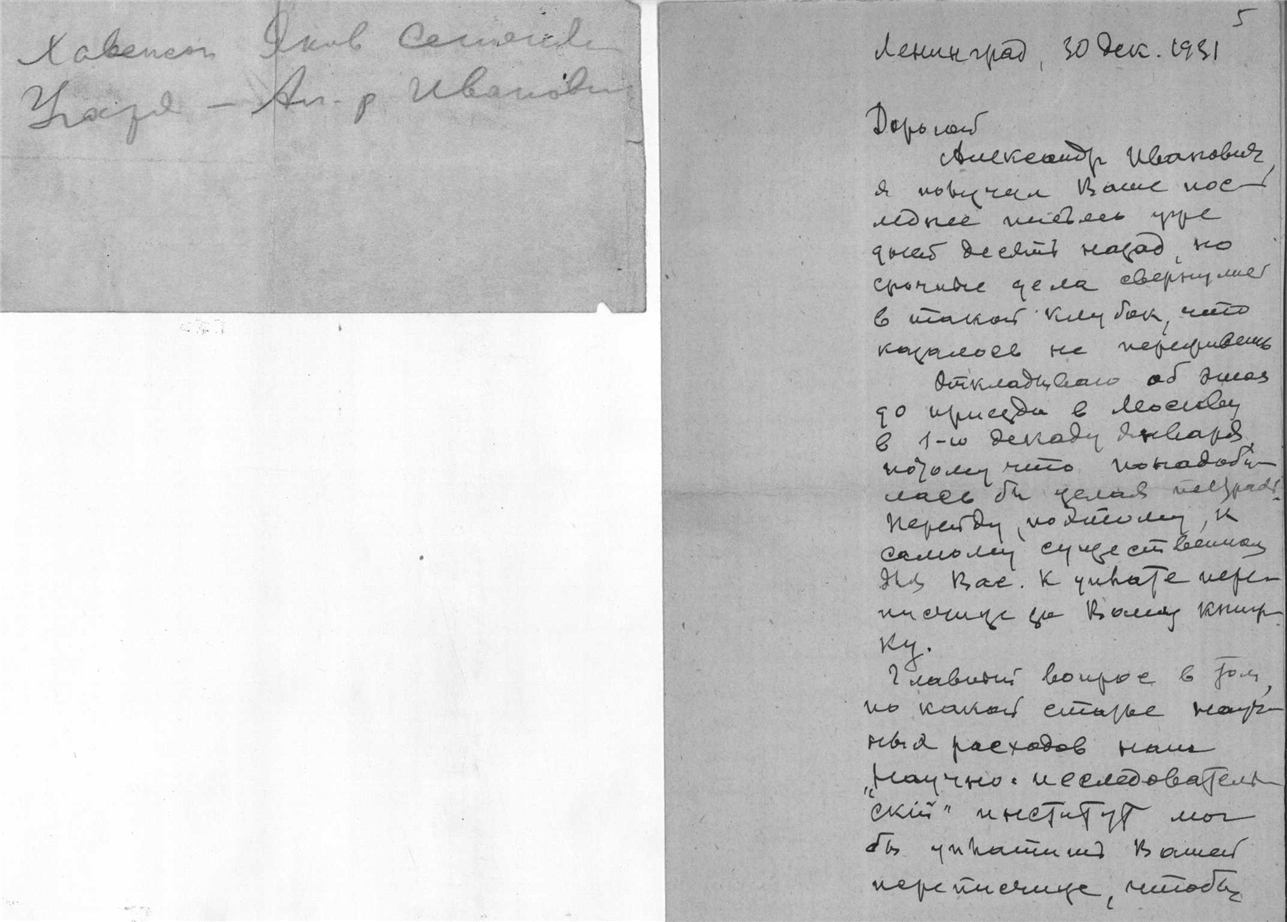 Яков
Ал. р Иванович
5
Ленинград, 30 дек. 1931
Дорогой
Александр Иванович,
я получил Ваше пос-
леднее письмо уже
дней десять назад, но
срочные дела свернулись
в такой клубок, что
казалось не
Откладываю об этом
до приезда в Москву
в 1-ю декаду Января,
потому что понадоби-
лась бы целая тетрадь.
Перейду, поэтому, к
самому существенному
для Вас. К уплате пере-
писчице за Вашу книж-
ку.
Главный вопрос в том,
по какой статье науч-
ных расходов наш
"Научно-исследователь-
скій" институт мог
бы уплатить Вашей
переписчице, чтобы